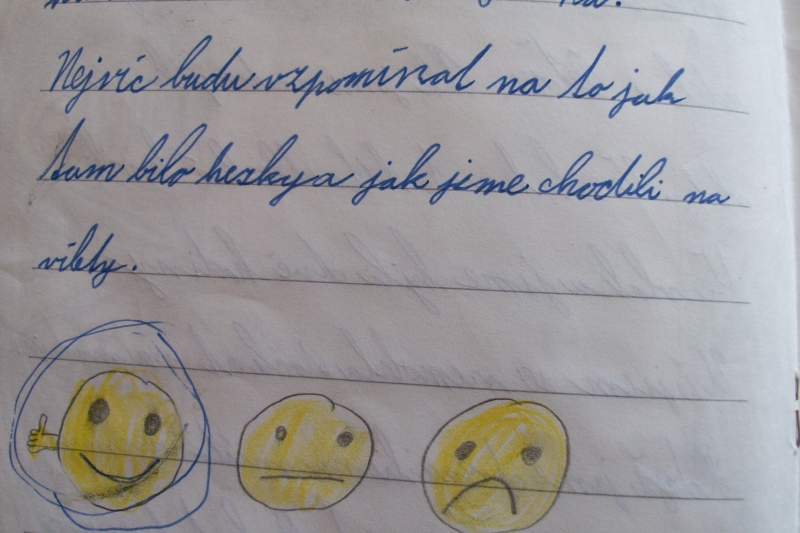 Nejvíc budu vzpomínal na to jak
tam bilo hezky a jak jsme chodili na
vílety.